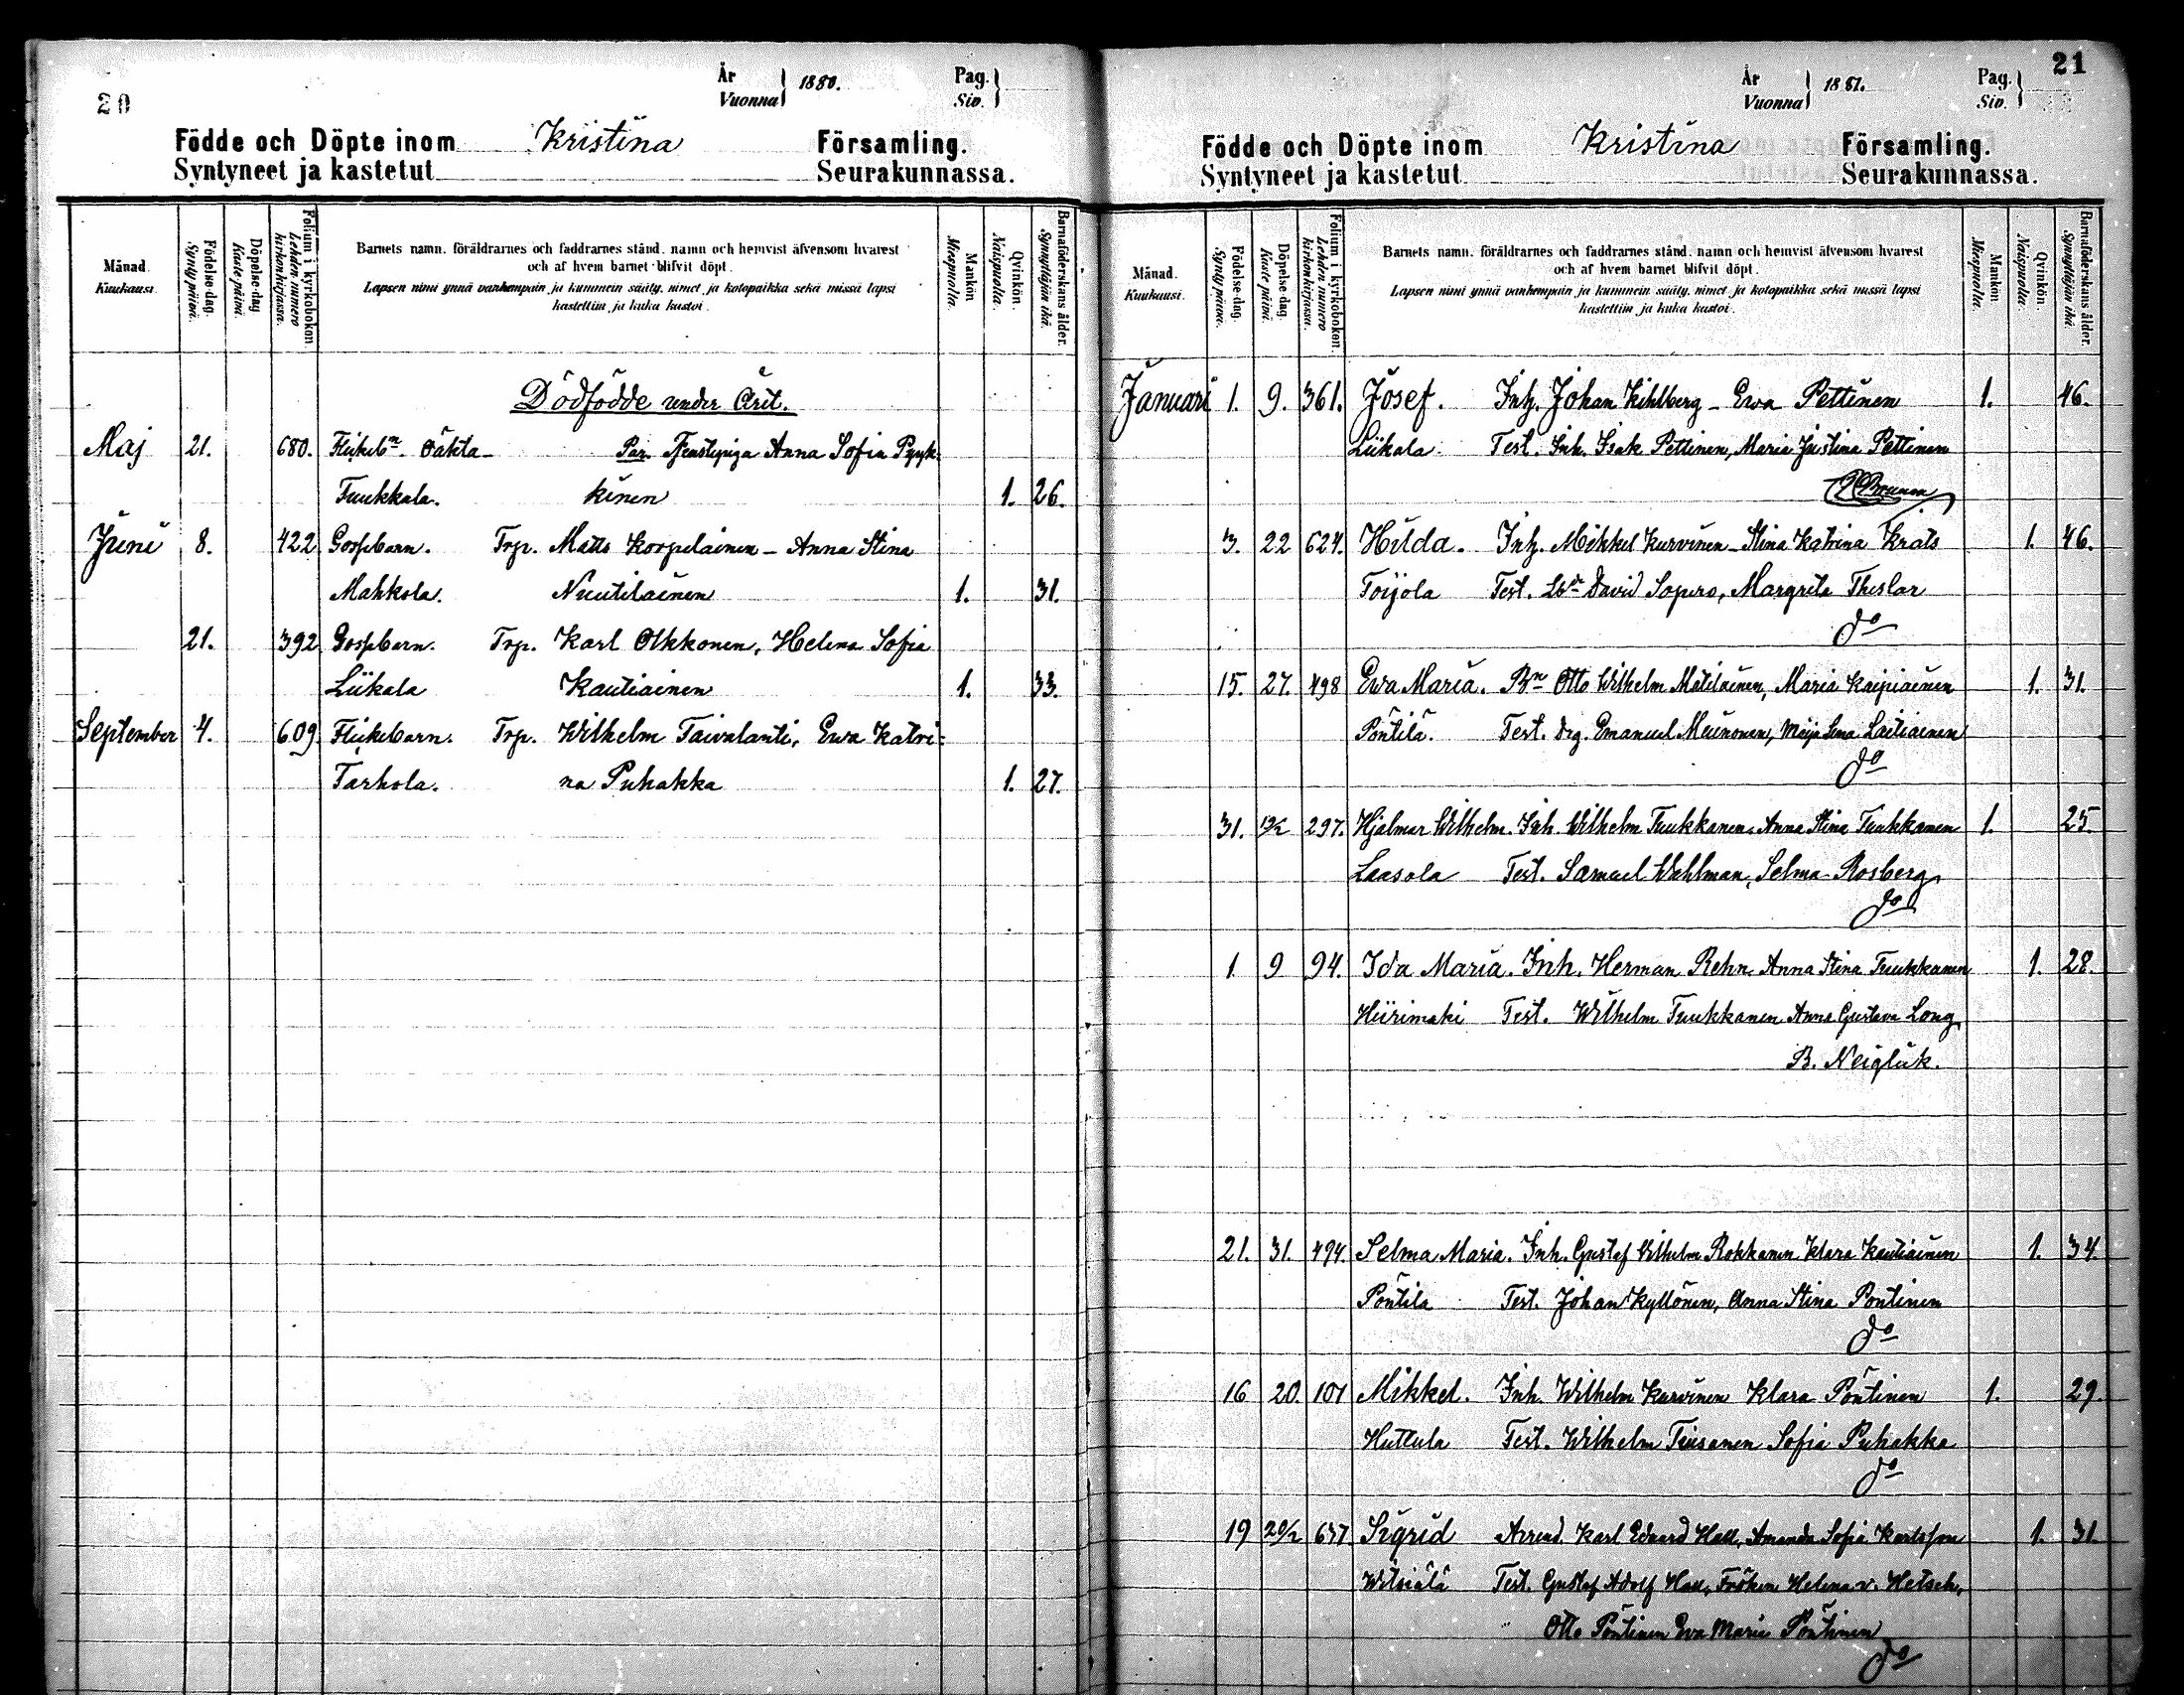 20
År Vuonna 1880.
Pag. Siv.
Födde och Döpte inom Kristina Församling.
Syntyneet ja kastetut Seurakunnassa.
Månad. Kuukausi.
Födelse-dag. Synty päivä.
Döpelse-dag Kaste päivä.
Folium i kyrkoboken. Lehden numero kirkonkirjassa.
Barnets namn, föräldrarnes och faddrarnes stånd, namn och hemvist äfvensom hvarest
och af hvem barnet blifvit döpt.
Lapsen nimi ynnä vanhempain ja kummein sääty, nimet ja kotopaikka sekä missä lapsi
kastettiin ja kuka kastoi.
Mankön Miespuolta.
Qvinkön. Naispuolta.
Barnaföderskans ålder. Synnyttäjän ikä.
Dödfödde under Året.
Maj 21. 680. Flickebn. oäkta Par. Tjenstepiga Anna Sofia Pyyk-
Tuukkala. kinen 1. 26.
Juni 8. 422 Gossebarn. Trp. Matts Korpelainen - Anna Stina
Mahkola. Nuutilainen 1. 31.
21. 392 Gossebarn. Trp. Karl Olkkonen, Helena Sofia
Liikala Kautiainen 1. 33.
September 4. 609. Flickebarn. Trp. Wilhelm Taivalanti, Ewa Katri-
Tarhola. na Puhakka 1. 27.
21
År Vuonna 1881.
Pag. Siv.
Födde och Döpte inom Kristina Församling.
Syntyneet ja kastetut Seurakunnassa.
Månad. Kuukausi.
Födelse-dag. Synty päivä.
Döpelse-dag. Kaste päivä.
Folium i kyrkoboken. Lehden numero kirkonkirjassa.
Barnets namn, föräldrarnes och faddrarnes stånd, namn och hemvist äfvensom hvarest
och af hvem barnet blifvit döpt.
Lapsen nimi ynnä vanhempain ja kummein sääty, nimet ja kotopaikka sekä missä lapsi
kastettiin ja kuka kastoi.
Mankön Miespuolta.
Qvinkön. Naispuolta.
Barnaföderskans ålder. Synnyttäjän ikä.
Januari 1. 9. 361. Josef. Inh. Johan Kihlberg - Ewa Pettinen 1. 46.
Liikala. Test. Inh. Isak Pettinen, Maria Justina Pettinen
3. 22 624. Hilda. Inh. Mikkel Kurvinen - Stina Katrina Krats 1. 46.
Toijola Test. David Sopero, Margreta Theslar
do
15. 27. 498 Ewa Maria. Bn Otto Wilhelm Matilainen, Maria Kaipiainen 1. 31.
Pöntilä. Test. Drg. Emanuel Meinonen, Maija Lena Laitiainen
do
31. 13/2 297. Hjalmar Wilhelm. Inh. Wilhelm Tuukkanen, Anna Stina Tuukkanen 1. 25.
Laasola Test. Samuel Wahlman, Selma Rosberg
do
1. 9 94. Ida Maria. Inh. Herman Rehn, Anna Stina Tuukkanen 1. 28.
Hiirimäki Test. Wilhelm Tuukkanen Anna Gustava Long
B. Neiglick.
21. 31. 494. Selma Maria. Inh. Gustaf Wilhelm Rokkanen Klara Kautiainen 1. 34.
Pöntilä Test. Johan Kyllönen, Anna Stina Pöntinen
do
16 20. 101 Mikkel. Inh. Wilhelm Kurvinen Klara Pöntinen 1. 29.
Huttula Test. Wilhelm Tiusanen Sofia Puhakka
do
19 20/2 637. Sigrid Arrend. Karl Eduard Hall, Amanda Sofia Karlsson 1. 31.
Witsiälä Test. Gustaf Adolf Hall, Fröken Helena v. Hetsch,
Otto Pöntinen Eva Maria Pöntinen
do